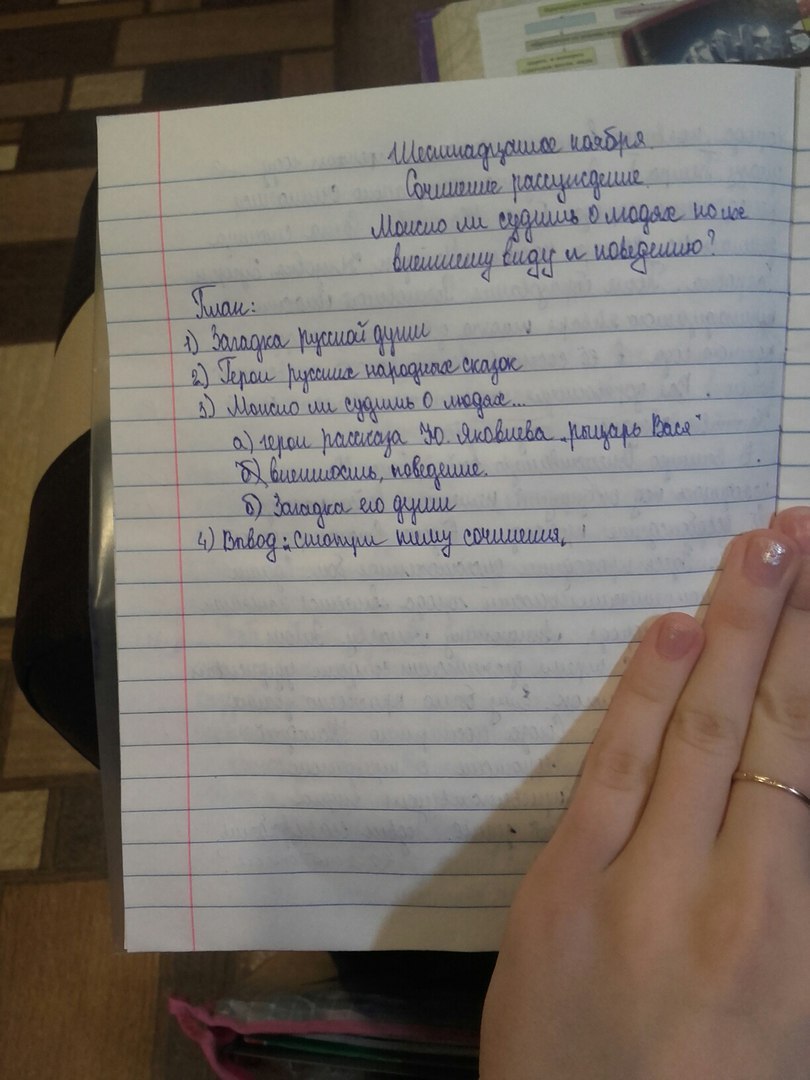 Шестнадцатое ноября
Сочинение рассуждение
Можно ли судить о людях по их
внешнему виду и поведению?
План:
1) Загадка русской души
2) Герои русских народных сказок
3) Можно ли судить о людях...
а) герои рассказа Ю. Яковлева „рыцарь Вася"
б) внешность, поведение.
б) Загадка его души
4) Вывод: смотри тему сочинения.